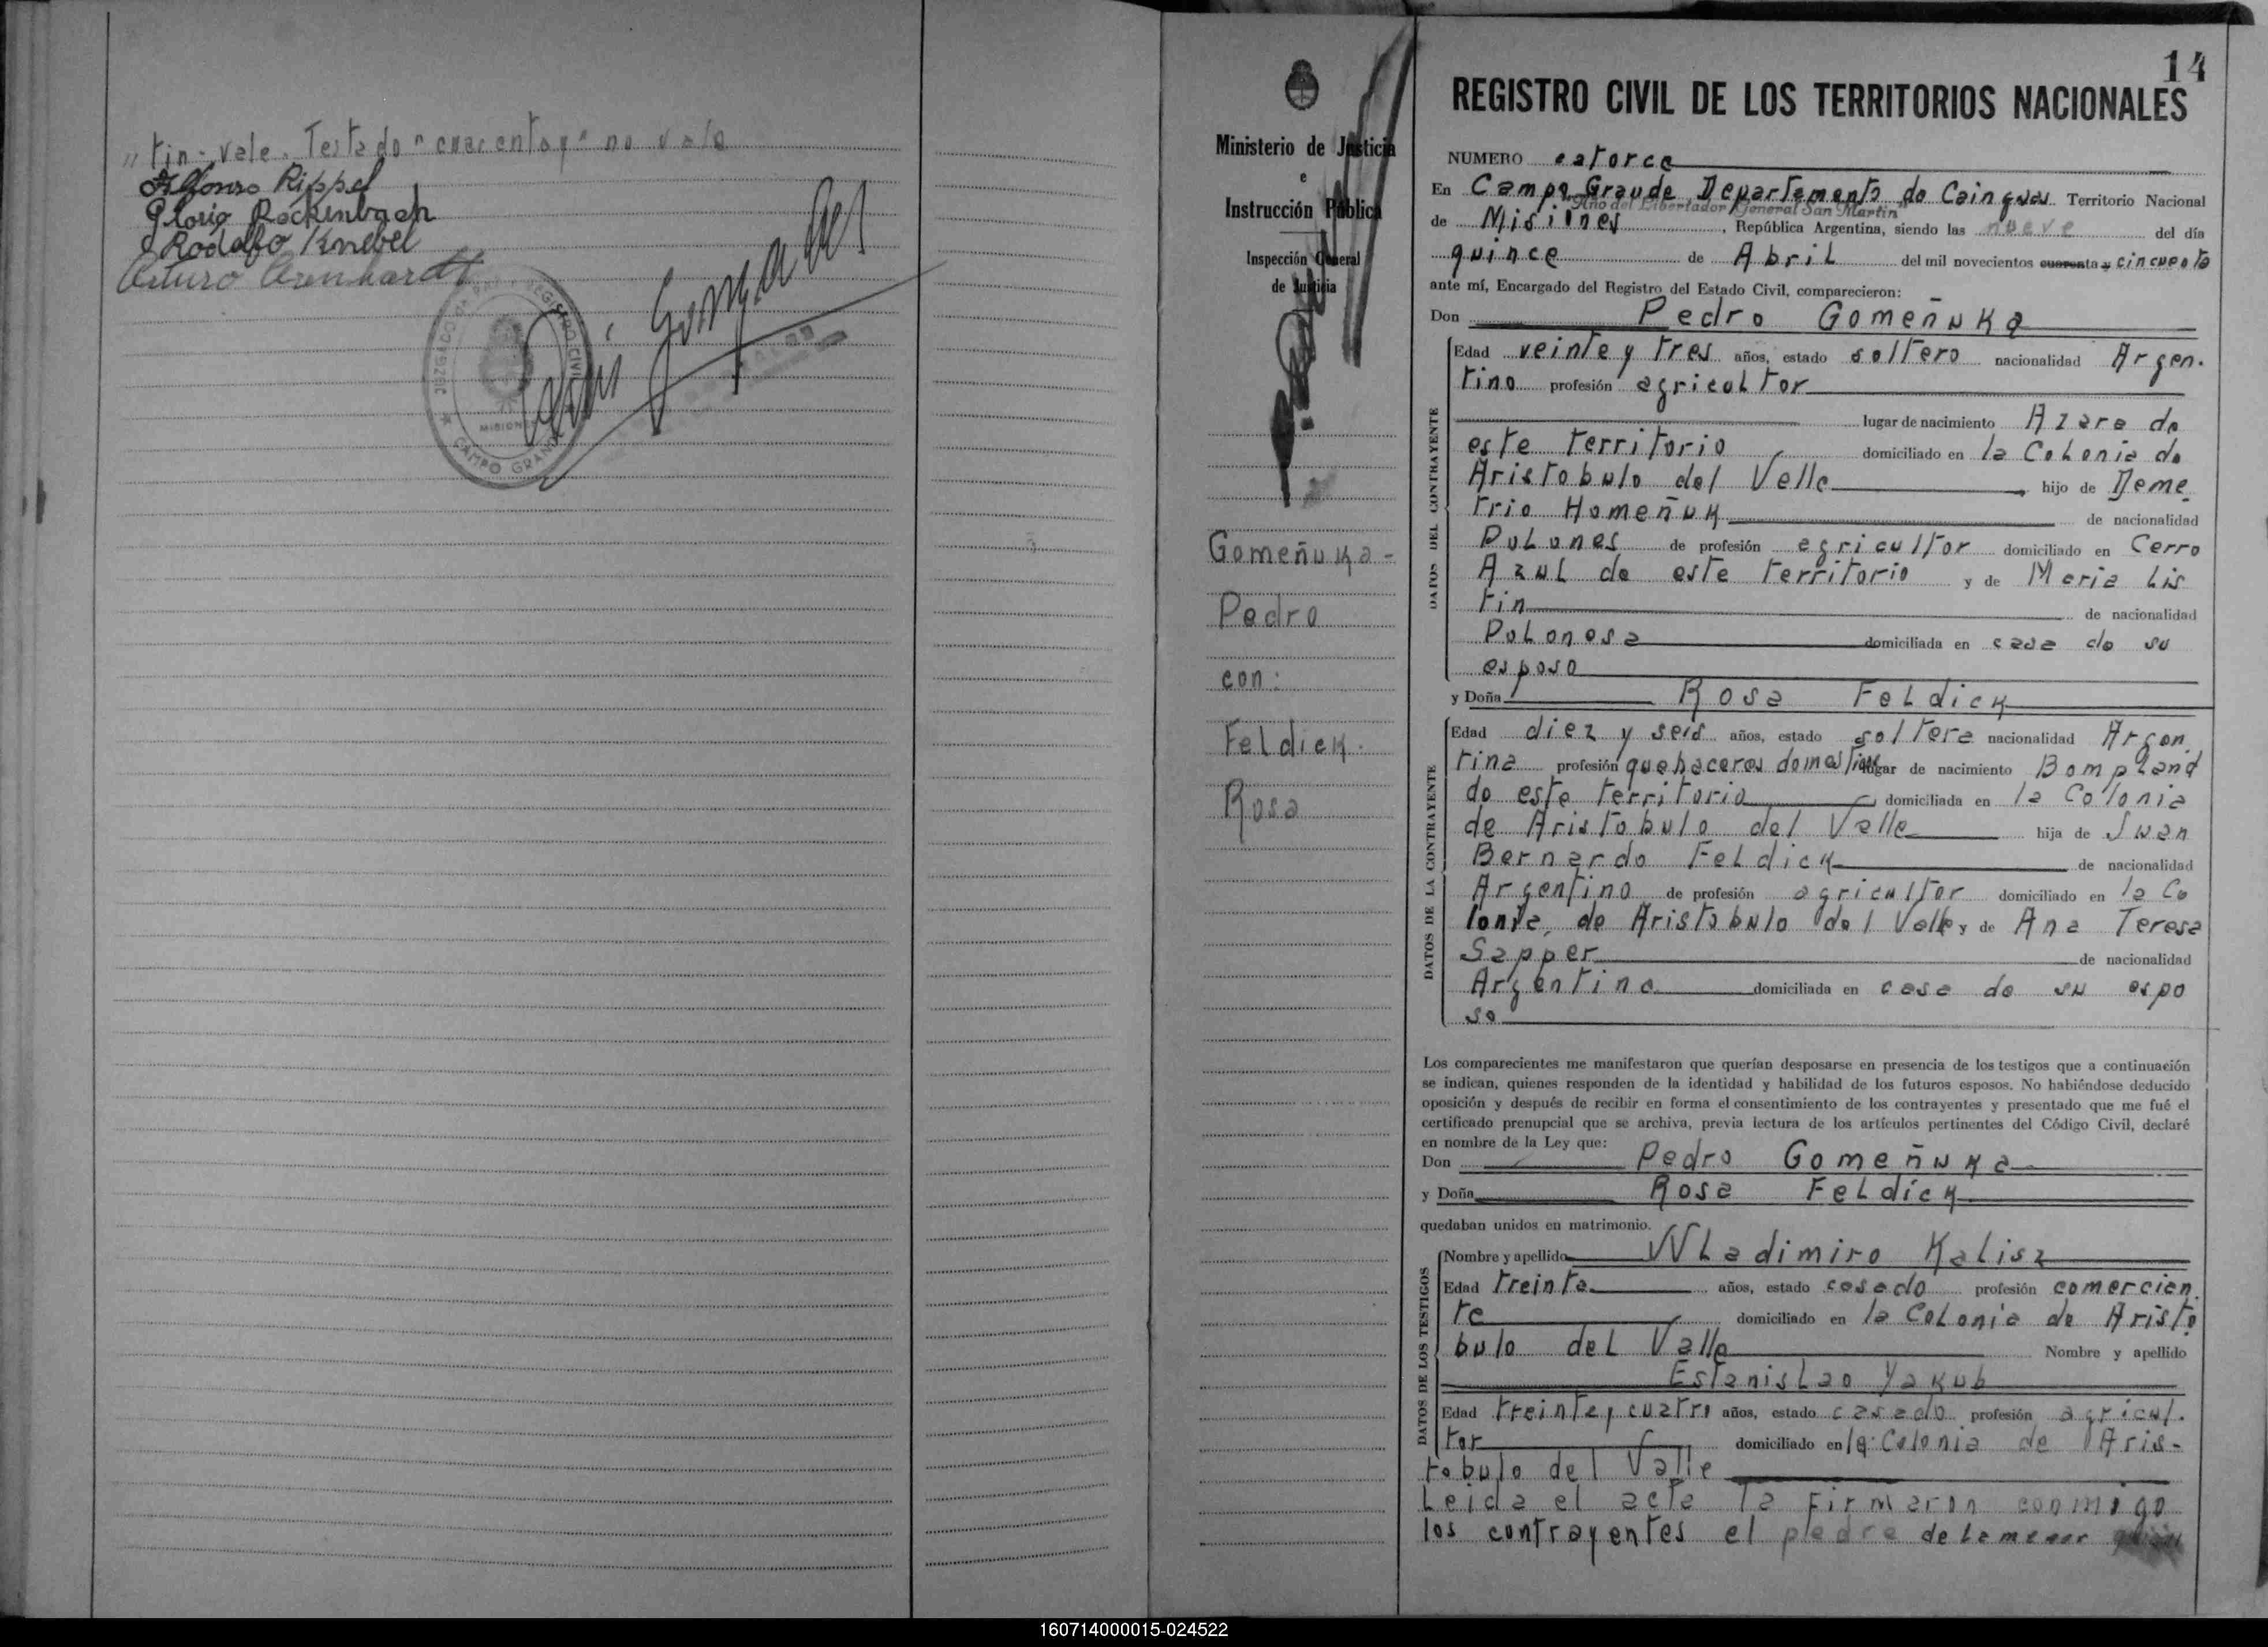 "tin-vale. Testado "cuarenta y" no vale
Alfonso Rippel
Gloria Rockenbach
Rodolfo Knebel
Arturo Arenhardt
JUZGADO DE PAZ Y REGISTRO CIVIL
MISIONES
CAMPO GRANDE
Ministerio de Justicia
e
Instrucción Pública
Inspección General
de Justicia
Gomeñuka-
Pedro
con:
Feldick.
Rosa
14
REGISTRO CIVIL DE LOS TERRITORIOS NACIONALES
NUMERO catorce
En Campo Grande, Departamento de Cainguas Territorio Nacional
"Año del Libertador General San Martín"
de Misiones, República Argentina, siendo las nueve del día
quince de Abril del mil novecientos cuarenta y cincuenta
ante mí, Encargado del Registro del Estado Civil, comparecieron:
Don Pedro Gomeñuka
DATOS DEL CONTRAYENTE
Edad veinte y tres años, estado soltero nacionalidad Argen.
tino profesión agricultor
lugar de nacimiento Azara de
este territorio domiciliado en la Colonia de
Aristobulo del Valle, hijo de Deme.
trio Homeñuk de nacionalidad
Polones de profesión agricultor domiciliado en Cerro
Azul de este territorio y de Maria Lis
tin de nacionalidad
Polonesa domiciliada en casa de su
esposo
y Doña Rosa Feldick
DATOS DE LA CONTRAYENTE
Edad diez y seis años, estado soltera nacionalidad Argen.
tina profesión quehaceres domesticos lugar de nacimiento Bompland
de este territorio domiciliada en la Colonia
de Aristobulo del Valle hija de Juan
Bernardo Feldick de nacionalidad
Argentino de profesión agricultor domiciliado en la Co
lonia de Aristobulo del Valle y de Ana Teresa
Sapper de nacionalidad
Argentina domiciliada en casa de su espo
so
Los comparecientes me manifestaron que querían desposarse en presencia de los testigos que a continuación
se indican, quienes responden de la identidad y habilidad de los futuros esposos. No habiéndose deducido
oposición y después de recibir en forma el consentimiento de los contrayentes y presentado que me fué el
certificado prenupcial que se archiva, previa lectura de los artículos pertinentes del Código Civil, declaré
en nombre de la Ley que:
Don Pedro Gomeñuka
y Doña Rosa Feldick
quedaban unidos en matrimonio.
DATOS DE LOS TESTIGOS
Nombre y apellido Wladimiro Kalisz
Edad treinta años, estado casado profesión comercian.
te domiciliado en la Colonia de Aristo
bulo del Valle Nombre y apellido
Estanislao Yakub
Edad treinta y cuatro años, estado casado profesión agricul.
tor domiciliado en la Colonia de Aris-
tobulo del Valle
Leida el acta la firmaron conmigo
los contrayentes el padre de la menor
160714000015-024522